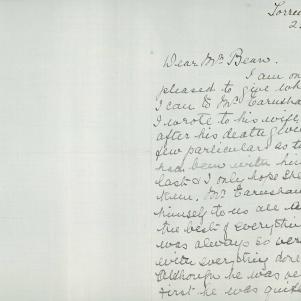 Torren
2
Dear Mr Bean.
I am on
pleased to give wh
I can to Mr Earnshaw
I wrote to his wife
after his death givin
few particulars as to
had been with him
last & I only hope she
them, Mr Earnshaw
himself to us all
the best of everythin
was always so ver
with everything done
Although he was ve
first he was quit